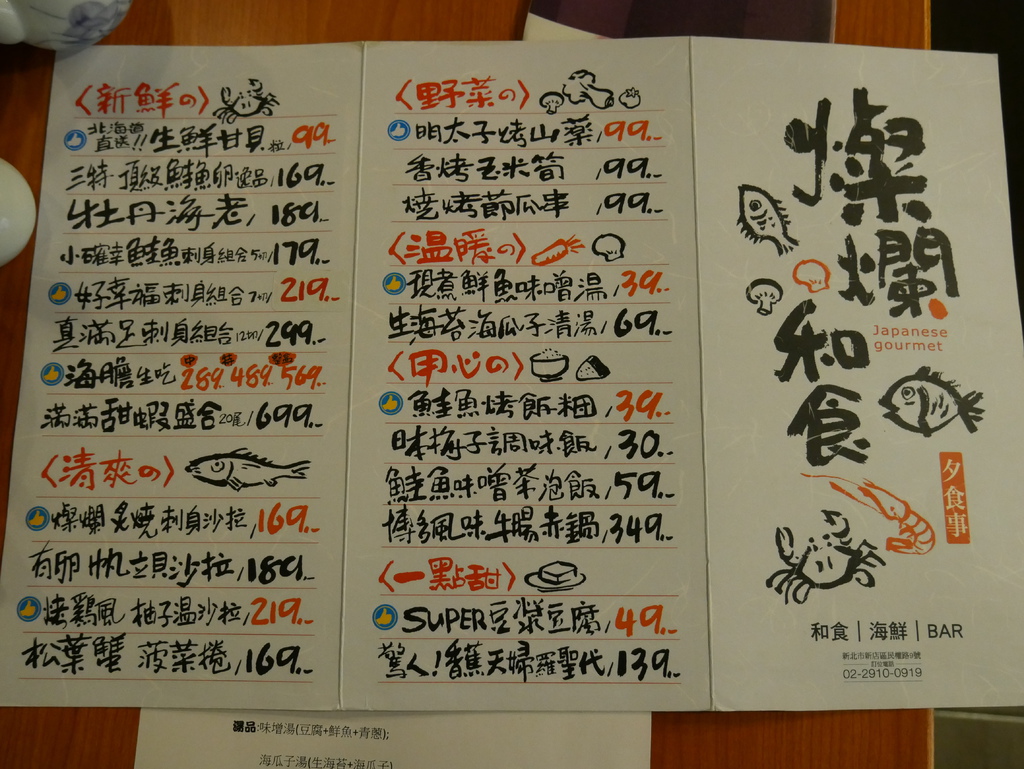 〈新鮮の〉
北海道直送!! 生鮮甘貝 粒/99.-
三特頂級鮭魚卵逸品/169.-
牡丹海老/189.-
小確幸鮭魚刺身組合5切/179.-
好幸福刺身組合7切/219.-
真滿足刺身組合12切/299.-
海膽生吃 中289. 特489. 569.-
滿滿甜蝦盛合20尾/699.-
〈清爽の〉
燦爛炙燒刺身沙拉/169.-
有卵帆立貝沙拉/189.-
烤鷄風柚子温沙拉/219.-
松葉蟹菠菜捲/169.-
〈野菜の〉
明太子烤山藥/99.-
香烤玉米筍/99.-
燒烤節瓜串/99.-
〈温暖の〉
現煮鮮魚味噌湯/39.-
生海苔海瓜子清湯/69.-
〈甲心の〉
鮭魚烤飯糰/39.-
日本梅子調味飯/30.-
鮭魚味噌茶泡飯/59.-
博多風味牛腸赤鍋/349.-
〈一點甜〉
SUPER豆漿豆腐/49.-
驚人!香蕉天婦羅聖代/139.-
燦爛和食
Japanese
gourmet
夕食事
和食|海鮮|BAR
新北市新店區民權路9號
訂位電話
02-2910-0919
湯品:味增湯(豆腐+鮮魚+青蔥);
海瓜子湯(生海苔+海瓜子)